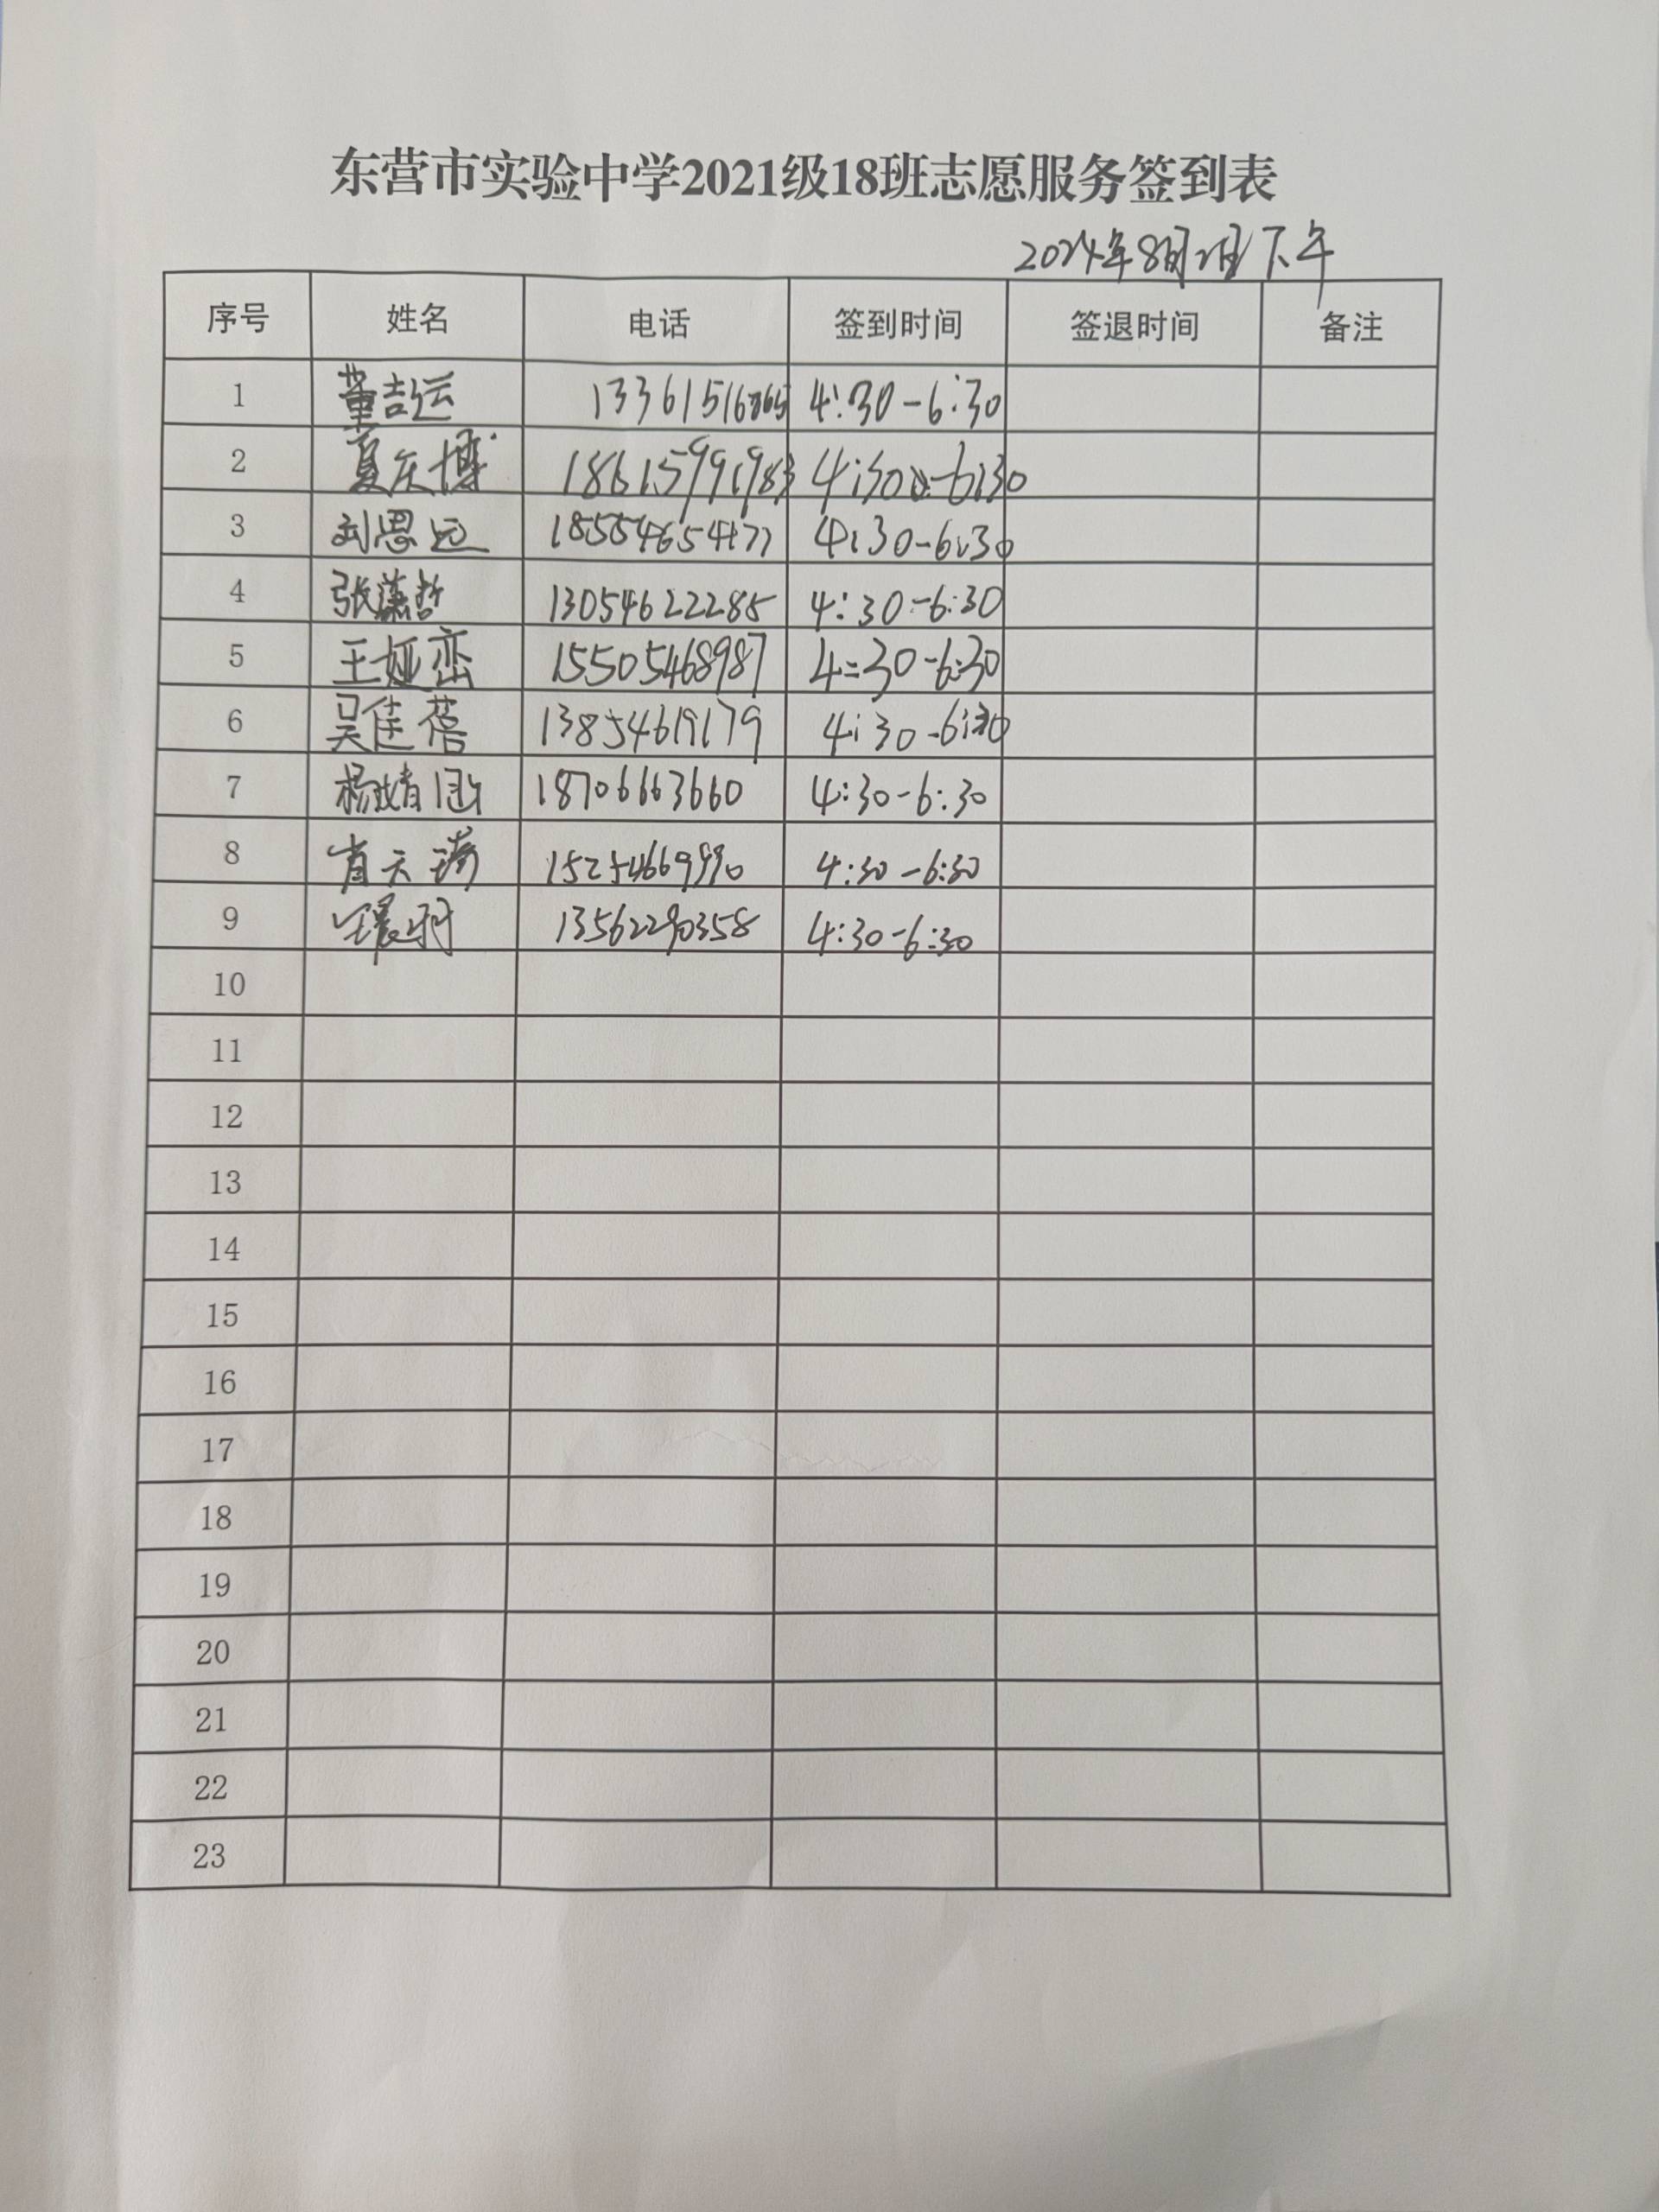 东营市实验中学2021级18班志愿服务签到表
2024年8月2日下午
序号 姓名 电话 签到时间 签退时间 备注
1 董吉运 4:30-6:30
2 夏庆博 18615991983 4:30-6:30
3 刘恩远 18554654177 4:30-6:30
4 张潇哲 13054622285 4:30-6:30
5 王娅峦 15505468987 4:30-6:30
6 吴佳蓓 13854619179 4:30-6:30
7 杨婧涵 18706663660 4:30-6:30
8 肖天 4:30-6:30
9 13562290358 4:30-6:30
10
11
12
13
14
15
16
17
18
19
20
21
22
23